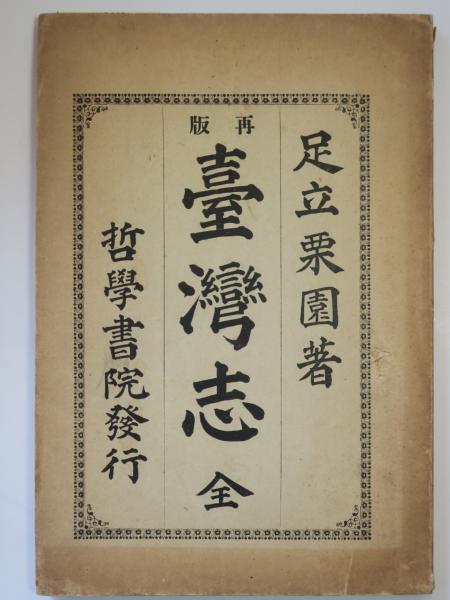 足立栗園著
再版
臺灣志全
哲學書院發行